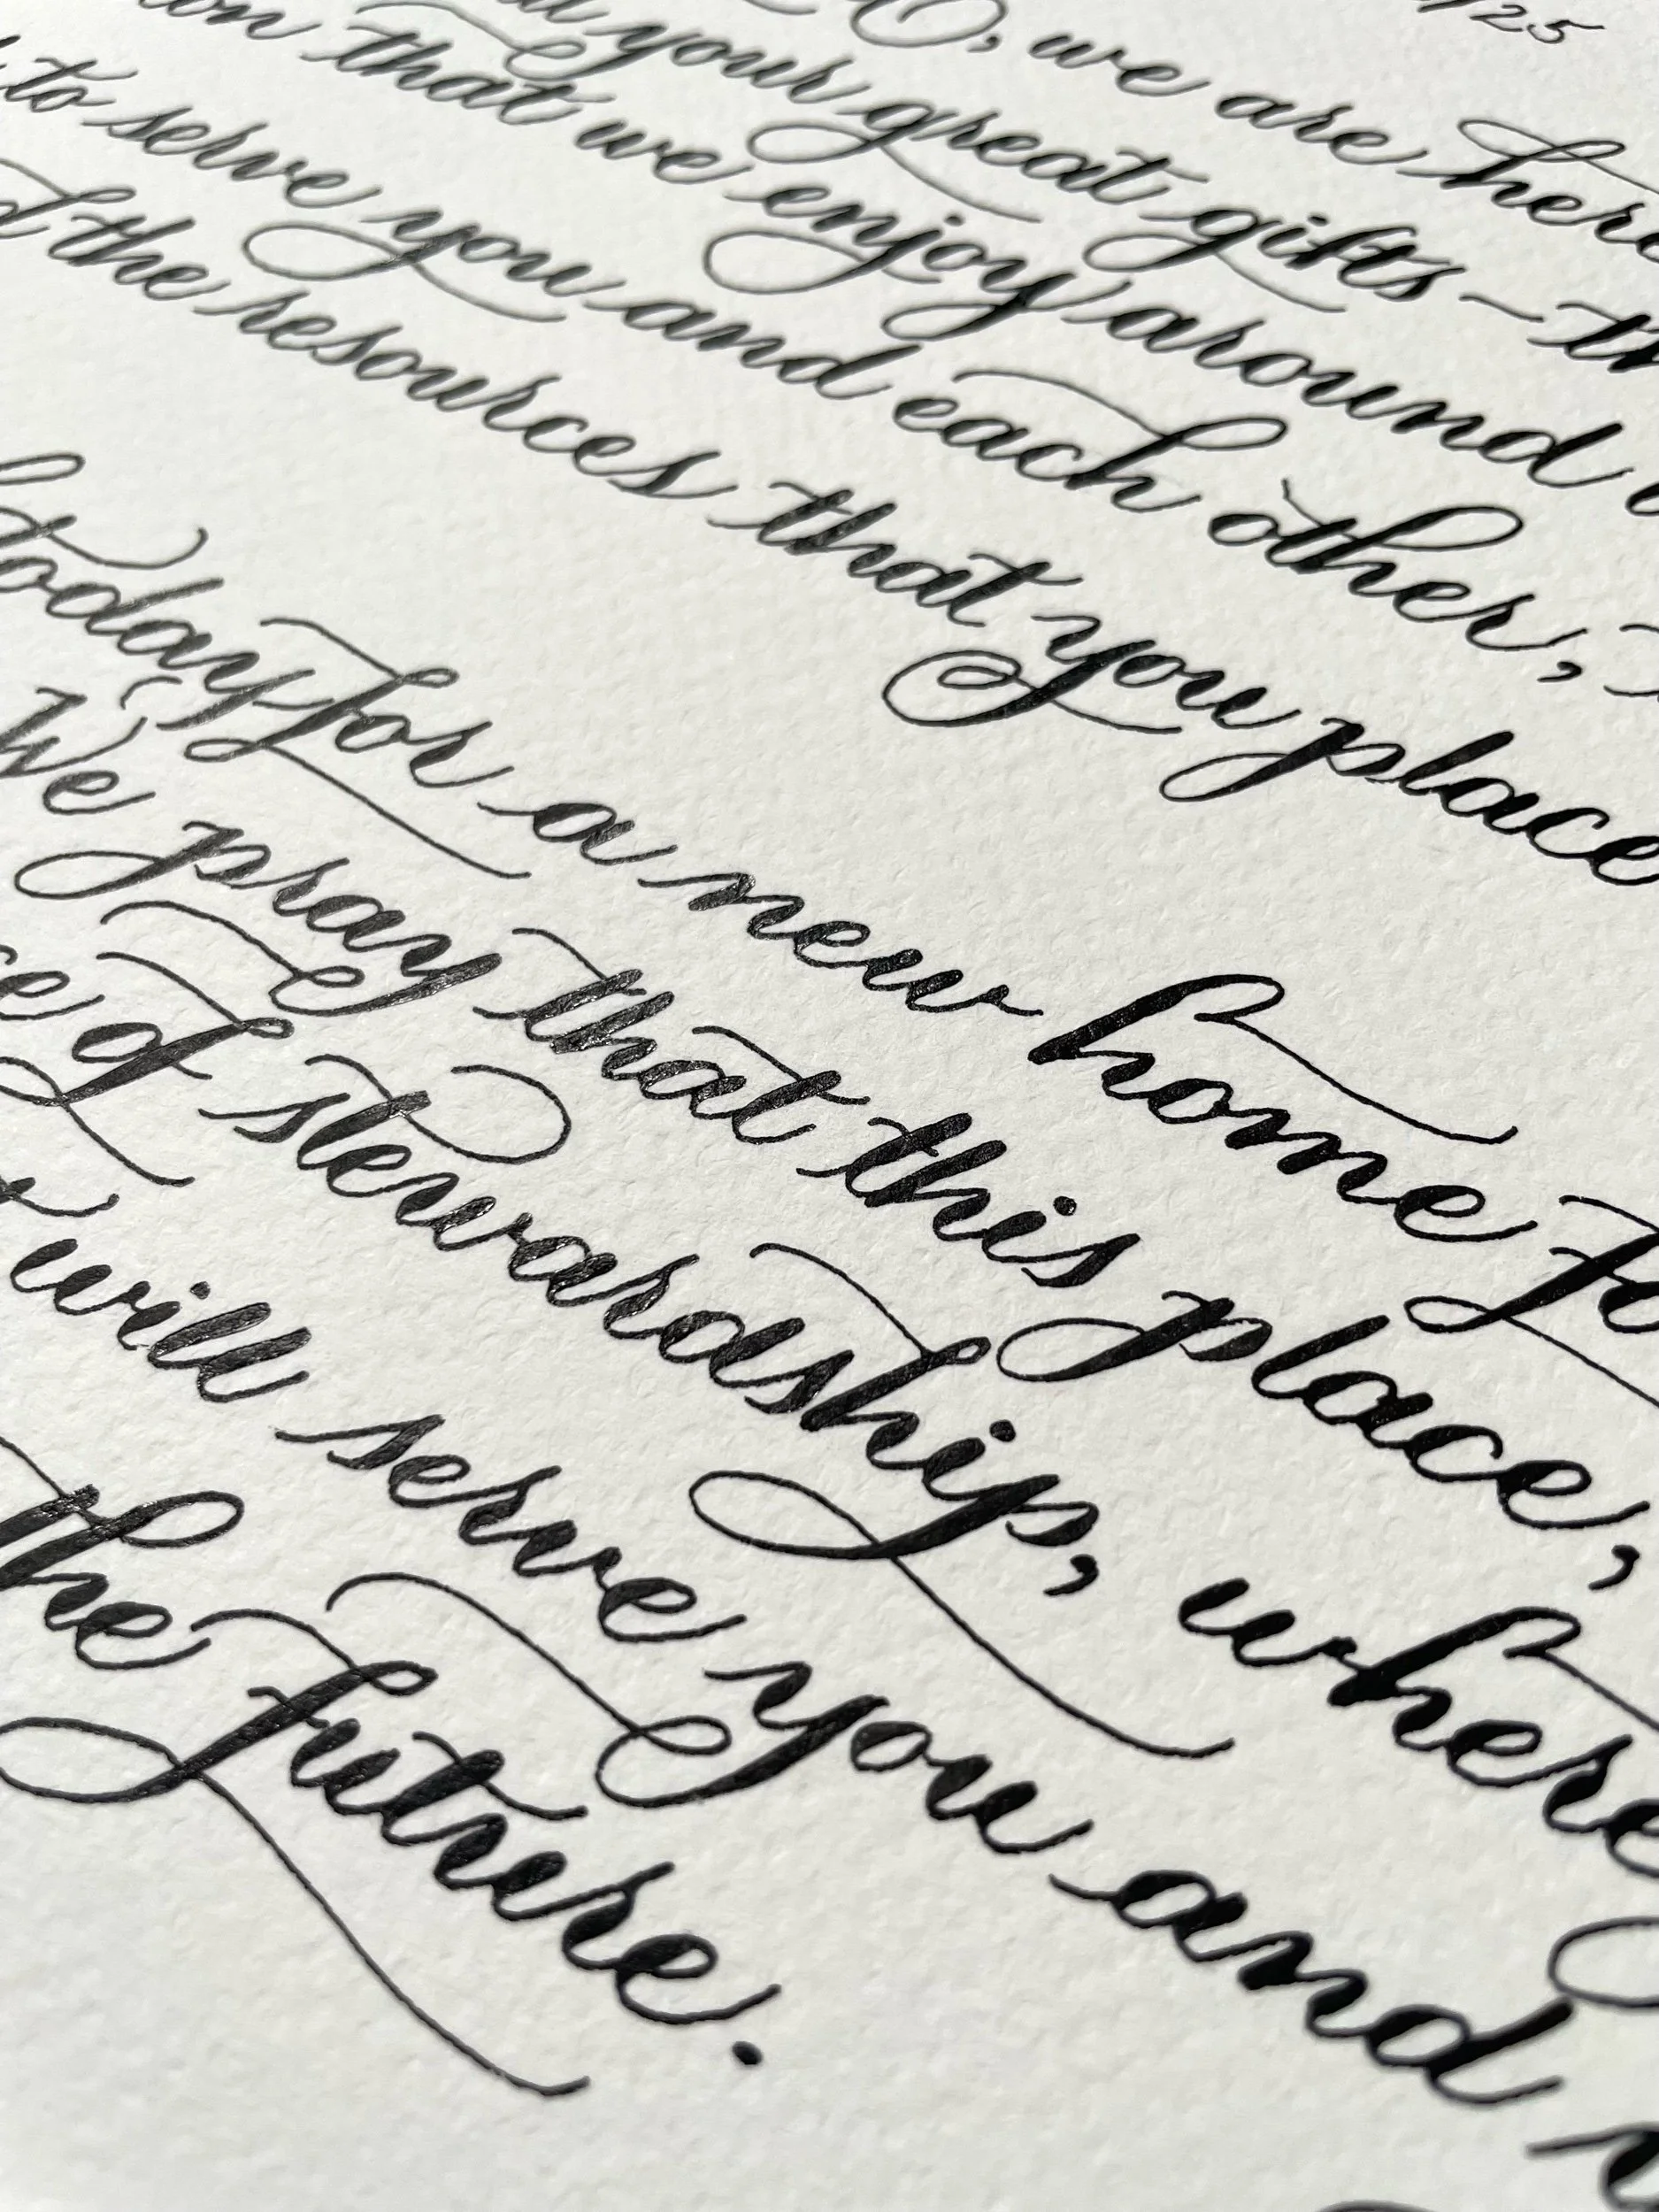 /25
O, we are here
your great gifts – th
on that we enjoy around
to serve you and each other,
d the resources that you place
today for a new home fo
We pray that this place,
ce of stewardship, where
will serve you and
the future.